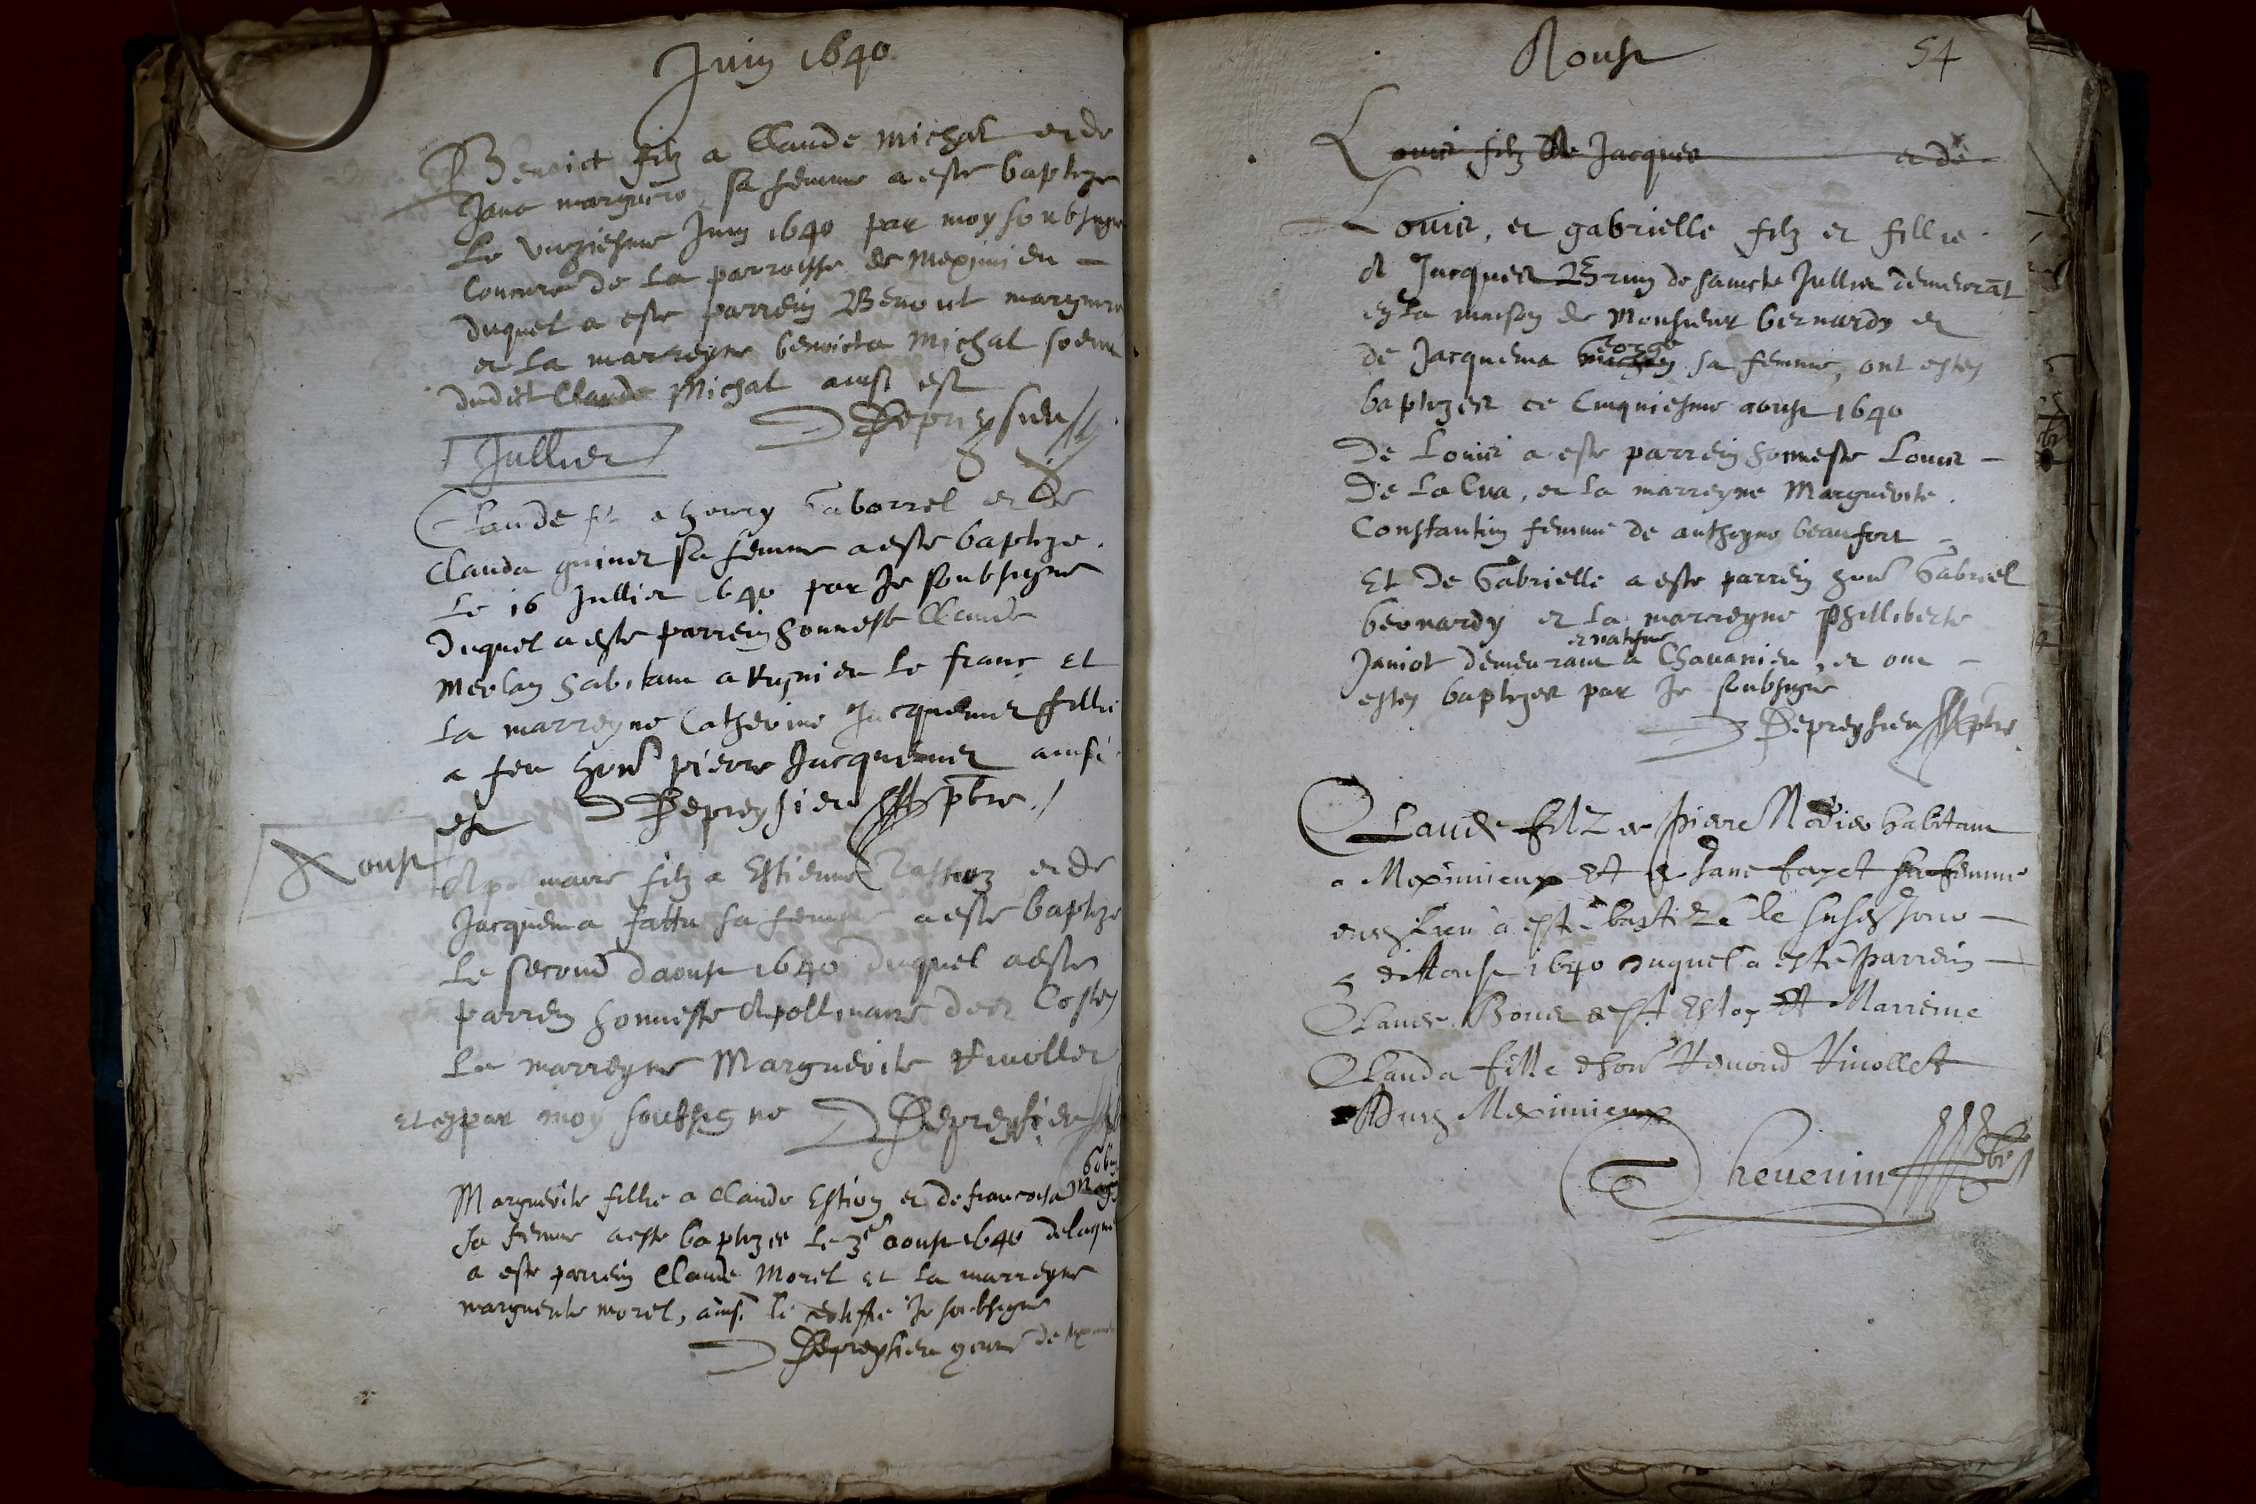 Juin 1640
Benoict filz a Claude Michal et de
Jane marguero sa femme a este baptize
le unziesme Juin 1640 par moy soubsigne
Concure de la parroisse de Meximieu
duquel a este parrein Benoict
et la marreyne benoicta Michal soeur
dudict Claude Michal ainsi est
Depreysieu
Jullier
Claude filz a henry Gaborrel et de
Clauda guinet sa femme a este baptize
le 16 Jullier 1640 par Je soubsigne
duquel a este parrein honneste Claude
Merlan habitant a Rignieu le franc et
la marreyne Catherine Jacquemet fillie
a feu hon pierre Jacquemet ainsi
est Depreysieu pbre
Aoust
Apolinaire filz a Estienne et de
Jacquema fattu sa femme a este baptize
le second daoust 1640 duquel a estes
parrein honneste Apollinaire des Costes
la marreyne Marguerite Rivollet
et ez par moy soubsigne Depreysieu
Marguerite fillie a Claude Estion et de francoisa
sa femme a este baptizee le 3e aoust 1640 de laquelle
a este parrein Claude Morel et la marreyne
marguerite morel, ainsi le certiffie Je soubsigne
Depreysieu
Aoust 54
Louis filz de Jacques et de
Louis, et gabrielle filz et fillie
a Jacques Brun de saincte Jullie demeurat
en la maison de Monsieur bernardy et
de Jacquema george sa femme, ont estes
baptizes ce Cinquiesme aoust 1640
De Louis a este parrein honneste Louis
De la Cua, et la marreyne Marguerite
Constantin femme de anthoyne beaufort
Et de Gabrielle a este parrein hon Gabriel
bernardy et la marreyne Philliberte
et natifve
Janiot demeurant a Chavanieu, et ont
estes baptizes par Je soubsigne
Depreysieu pbre
Claude filz de Pierre Nodier habitant
a Meximieux et de Jane fayet sa femme
a este baptizé le
Aoust 1640 duquel a esté Parrein
Claude et Marreine
Clauda fille Rivollet
Meximieux
Thevenin pbre